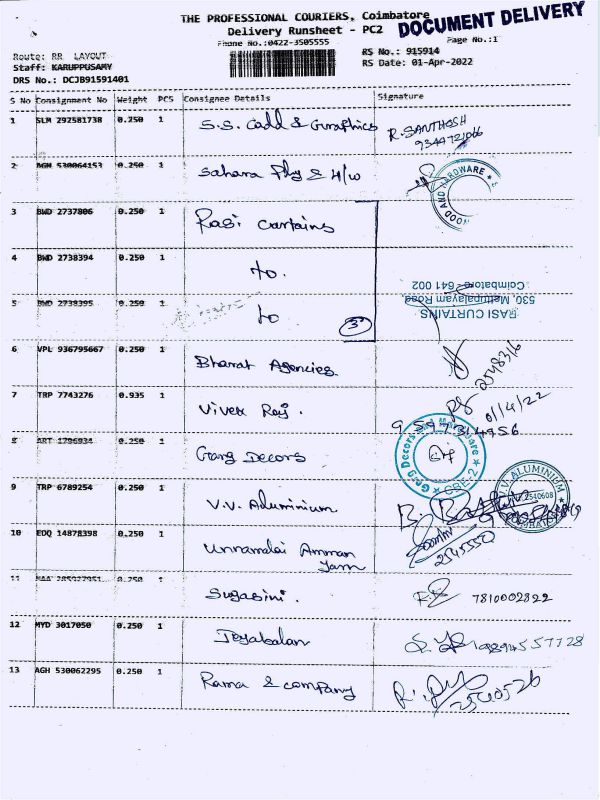 THE PROFESSIONAL COURIERS, Coimbatore
DOCUMENT DELIVERY
Delivery Runsheet - PC2
Phone No.:0422-3505555
Page No.:1
Route: RR LAYOUT
RS No.: 915914
Staff: KARUPPUSAMY
RS Date: 01-Apr-2022
DRS No.: DCJB91591401
S No Consignment No Weight PCS Consignee Details Signature
1 SLM 292581738 0.250 1 S.S. Cadd & Graphics R. SANTHOSH
9344721066
2 AGH 530064153 0.250 1 Sahara Ply & H/w
WOOD AND HARDWARE
3 BWD 2737806 0.250 1 Rasi Curtains
4 BWD 2738394 0.250 1 to.
RASI CURTAINS
530, Mettupalayam Road
Coimbatore - 641 002
5 BWD 2738395 0.250 1 to 3
6 VPL 936795667 0.250 1 Bharat Agencies 2548316
7 TRP 7743276 0.935 1 Vivek Raj. 01/4/22
9597314956
8 ART 1796934 0.250 1 Garg Decors
Garg Decors and Hardware CBE-2
9 TRP 6789254 0.250 1 V.V. Aluminium
V.V. ALUMINIUM 2540608 COIMBATORE
10 EDQ 14878398 0.250 1 Unnamalai Amman
Yarn 2545550
11 0.250 1 Sugasini. 7810002822
12 MYD 3017050 0.250 1 Jeyabalan 9894557728
13 AGH 530062295 0.250 1 Rama & company 2540526